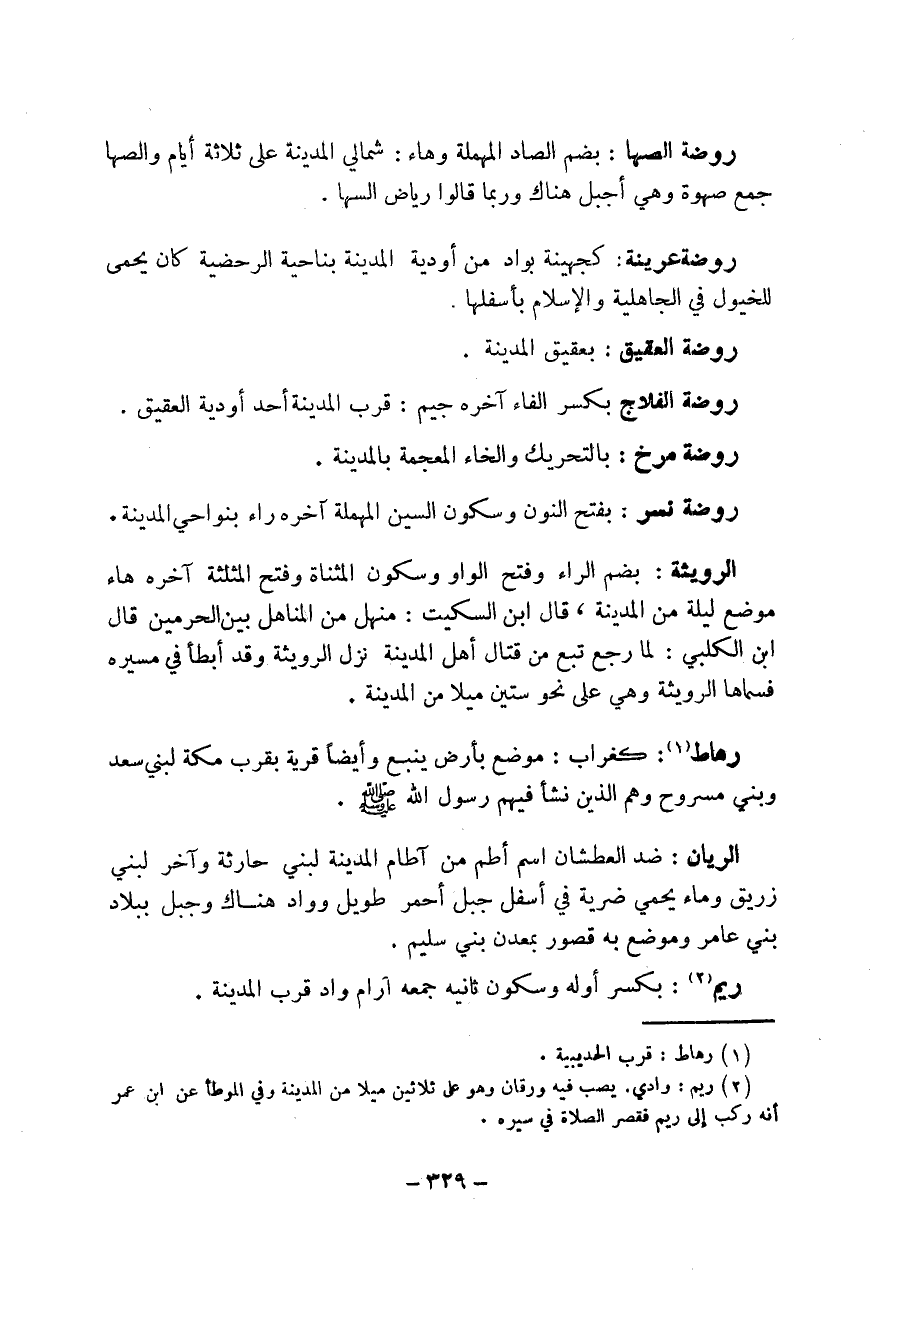 روضة الصها : بضم الصاد المهملة وهاء : شمالي المدينة على ثلاثة أيام والصها
جمع صهوة وهي أجبل هناك وربما قالوا رياض السها .
روضة عرينة : كجهينة بواد من أودية المدينة بناحية الرحضية كان يحمى
للخيول في الجاهلية والإسلام بأسفلها .
روضة العقيق : بعقيق المدينة .
روضة الفلاج بكسر الفاء آخره جيم : قرب المدينة أحد أودية العقيق .
روضة مرخ : بالتحريك والخاء المعجمة بالمدينة .
روضة نسر : بفتح النون وسكون السين المهملة آخره راء بنواحي المدينة .
الرويثة : بضم الراء وفتح الواو وسكون المثناة وفتح المثلثة آخره هاء
موضع ليلة من المدينة ، قال ابن السكيت : منهل من المناهل بين الحرمين قال
ابن الكلبي : لما رجع تبع من قتال أهل المدينة نزل الرويثة وقد أبطأ في مسيره
فسماها الرويثة وهي على نحو ستين ميلا من المدينة .
رهاط(١) : كغراب : موضع بأرض ينبع وأيضاً قرية بقرب مكة لبني سعد
وبني مسروح وهم الذين نشأ فيهم رسول الله ﷺ .
الريان : ضد العطشان اسم أطم من آطام المدينة لبني حارثة وآخر لبني
زريق وماء يحمي ضرية في أسفل جبل أحمر طويل وواد هناك وجبل ببلاد
بني عامر وموضع به قصور بمعدن بني سليم .
ريم(٢) : بكسر أوله وسكون ثانيه جمعه آرام واد قرب المدينة .
(١) رهاط : قرب الحديبية .
(٢) ريم : وادي. يصب فيه ورقان وهو على ثلاثين ميلا من المدينة وفي الموطأ عن ابن عمر
أنه ركب إلى ريم فقصر الصلاة في سيره .
– ٣٢٩ –